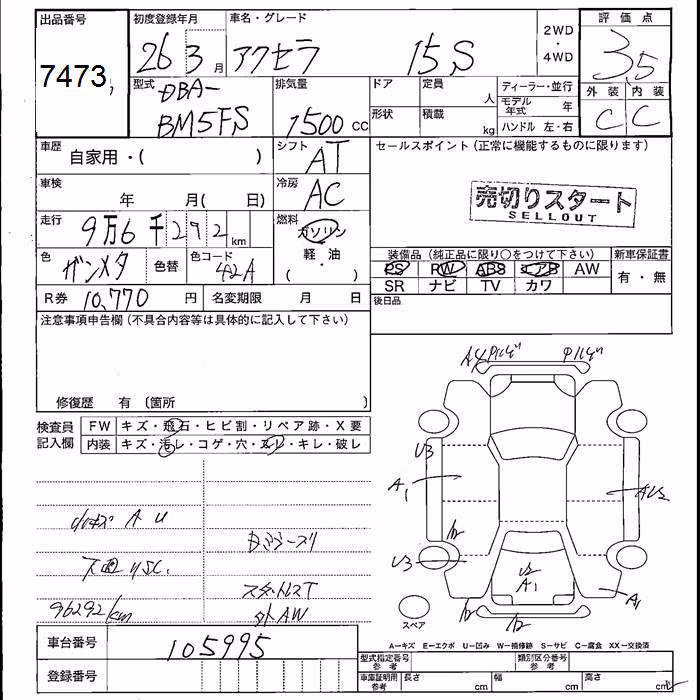 出品番号 初度登録年月 車名・グレード 2WD・4WD 評価点
7473 26 3月 アクセラ 15S 3.5
型式 排気量 ドア 定員 人 ディーラー・並行 外装 内装
DBA-BM5FS 1500cc 形状 積載 kg モデル年式 年 C C
ハンドル 左・右
車歴 自家用・( ) シフト AT セールスポイント(正常に機能するものに限ります)
車検 年 月( 日) 冷房 AC 売切りスタート
SELLOUT
走行 9万6千272km 燃料 ガソリン 軽・油 ( )
色 ガンメタ 色替 色コード 42A 装備品(純正品に限り○をつけて下さい) 新車保証書
PS PW ABS エアB AW 有・無
SR ナビ TV カワ
R券 10,770円 名変期限 月 日 後日品
注意事項申告欄(不具合内容等は具体的に記入して下さい)
修復歴 有 〔箇所 〕
検査員記入欄 FW キズ・飛石・ヒビ割・リペア跡・X要
内装 キズ・汚レ・コゲ・穴・スレ・キレ・破レ
A U
96292km 外AW
U3
A1
U3
U2
A1
A1
スペア
車台番号 105995
A-キズ E-エクボ U-凹み W-補修跡 S-サビ C-腐食 XX-交換済
登録番号 型式指定番号 参考 類別区分番号 参考
車庫証明用 参考 長さ cm 幅 cm 高さ cm